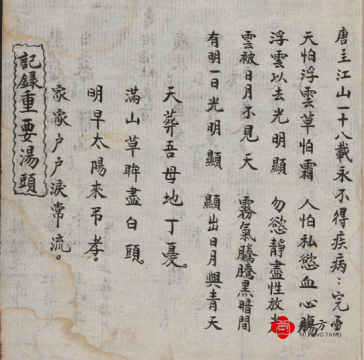 唐主江山一十八載永不得疾病：完
天怕浮雲草怕霜 人怕私慾血心
浮雲以去光明顯 勿慾靜盡性放光
雲被日月不見天 霧氣騰騰黑暗間
有明一日光明顯 顯出日月與青天
天葬吾母地丁憂。
滿山草眸盡白頭。
明早太陽來弔孝。
家家戶戶淚常流。
記錄重要湯頭
方
TANG